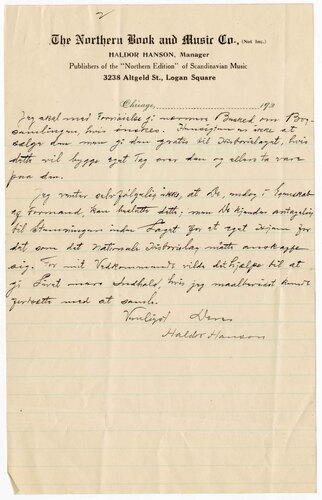 2
The Northern Book and Music Co., (Not Inc.)
HALDOR HANSON, Manager
Publishers of the "Northern Edition" of Scandinavian Music
3238 Altgeld St., Logan Square
Chicago, 192
Jeg skal med Fornøielse gi nærmere Besked om Bog-
samlingen, hvis ønskes. Hensigten er ikke at
sælge den men gi den gratis til Historielaget, hvis
dette vil bygge eget Tag over den og ellers ta vare
paa den.
Jeg venter selvfølgelig ikke, at De, endog i Egenskab
af Formand, kan beslutte dette, men De kjender antagelig
til Stemningen inden Laget for et eget Hjem for
det som det Nationale Historielag maatte anskaffe
sig. For mit Vedkommende vilde det hjælpe til at
gi Livet mere Indhold, hvis jeg maalbevidst kunde
fortsætte med at samle.
Venligst Deres
Haldor Hanson